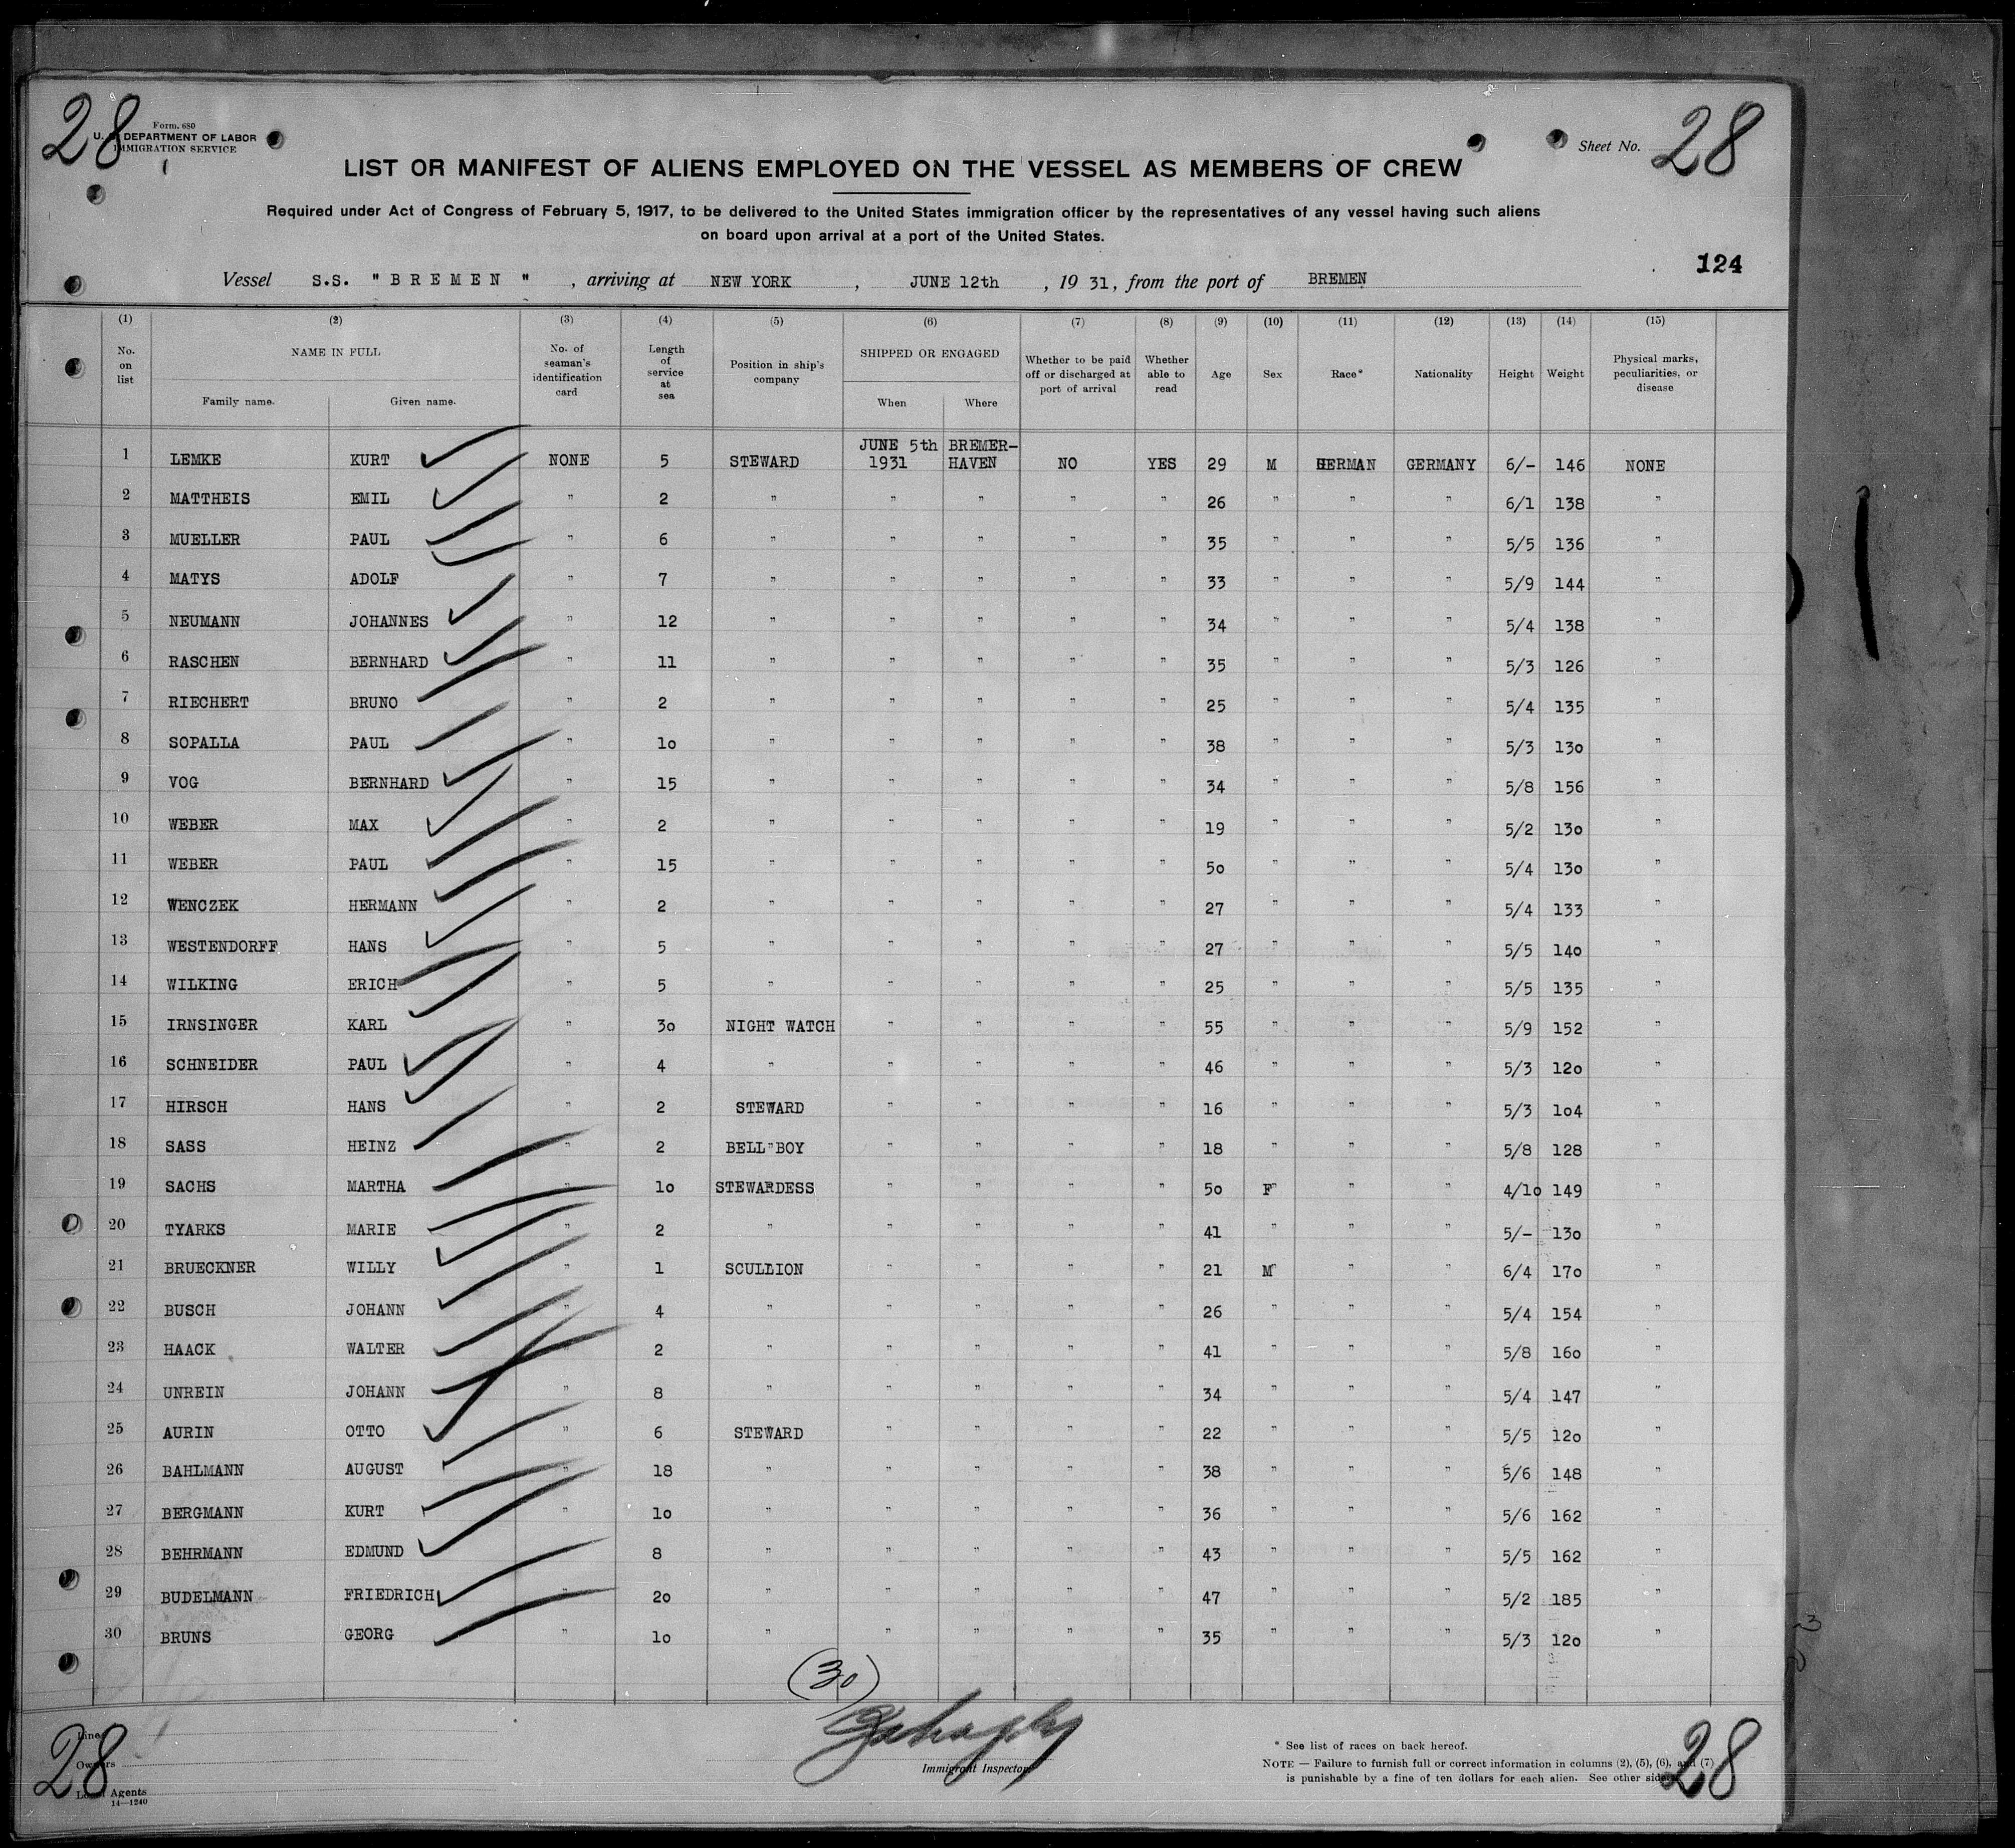 28
Form. 680
U. S. DEPARTMENT OF LABOR
IMMIGRATION SERVICE
Sheet No. 28
LIST OR MANIFEST OF ALIENS EMPLOYED ON THE VESSEL AS MEMBERS OF CREW
Required under Act of Congress of February 5, 1917, to be delivered to the United States immigration officer by the representatives of any vessel having such aliens
on board upon arrival at a port of the United States.
124
Vessel S.S. "BREMEN", arriving at NEW YORK, JUNE 12th, 1931, from the port of BREMEN
(1) (2) (3) (4) (5) (6) (7) (8) (9) (10) (11) (12) (13) (14) (15)
No. on list
NAME IN FULL
Family name. Given name.
No. of seaman's identification card
Length of service at sea
Position in ship's company
SHIPPED OR ENGAGED
When Where
Whether to be paid off or discharged at port of arrival
Whether able to read
Age
Sex
Race*
Nationality
Height
Weight
Physical marks, peculiarities, or disease
1 LEMKE KURT NONE 5 STEWARD JUNE 5th 1931 BREMER-HAVEN NO YES 29 M GERMAN GERMANY 6/- 146 NONE
2 MATTHEIS EMIL " 2 " " " " " 26 " " " 6/1 138 "
3 MUELLER PAUL " 6 " " " " " 35 " " " 5/5 136 "
4 MATYS ADOLF " 7 " " " " " 33 " " " 5/9 144 "
5 NEUMANN JOHANNES " 12 " " " " " 34 " " " 5/4 138 "
6 RASCHEN BERNHARD " 11 " " " " " 35 " " " 5/3 126 "
7 RIECHERT BRUNO " 2 " " " " " 25 " " " 5/4 135 "
8 SOPALLA PAUL " 10 " " " " " 38 " " " 5/3 130 "
9 VOG BERNHARD " 15 " " " " " 34 " " " 5/8 156 "
10 WEBER MAX " 2 " " " " " 19 " " " 5/2 130 "
11 WEBER PAUL " 15 " " " " " 50 " " " 5/4 130 "
12 WENCZEK HERMANN " 2 " " " " " 27 " " " 5/4 133 "
13 WESTENDORFF HANS " 5 " " " " " 27 " " " 5/5 140 "
14 WILKING ERICH " 5 " " " " " 25 " " " 5/5 135 "
15 IRNSINGER KARL " 30 NIGHT WATCH " " " " 55 " " " 5/9 152 "
16 SCHNEIDER PAUL " 4 " " " " " 46 " " " 5/3 120 "
17 HIRSCH HANS " 2 STEWARD " " " " 16 " " " 5/3 104 "
18 SASS HEINZ " 2 BELL"BOY " " " " 18 " " " 5/8 128 "
19 SACHS MARTHA " 10 STEWARDESS " " " " 50 F " " 4/10 149 "
20 TYARKS MARIE " 2 " " " " " 41 " " " 5/- 130 "
21 BRUECKNER WILLY " 1 SCULLION " " " " 21 M " " 6/4 170 "
22 BUSCH JOHANN " 4 " " " " " 26 " " " 5/4 154 "
23 HAACK WALTER " 2 " " " " " 41 " " " 5/8 160 "
24 UNREIN JOHANN " 8 " " " " " 34 " " " 5/4 147 "
25 AURIN OTTO " 6 STEWARD " " " " 22 " " " 5/5 120 "
26 BAHLMANN AUGUST " 18 " " " " " 38 " " " 5/6 148 "
27 BERGMANN KURT " 10 " " " " " 36 " " " 5/6 162 "
28 BEHRMANN EDMUND " 8 " " " " " 43 " " " 5/5 162 "
29 BUDELMANN FRIEDRICH " 20 " " " " " 47 " " " 5/2 185 "
30 BRUNS GEORG " 10 " " " " " 35 " " " 5/3 120 "
(30)
Line
Owners
Local Agents
14—1240
28
Immigrant Inspector.
* See list of races on back hereof.
NOTE — Failure to furnish full or correct information in columns (2), (5), (6), and (7)
is punishable by a fine of ten dollars for each alien. See other side.
28